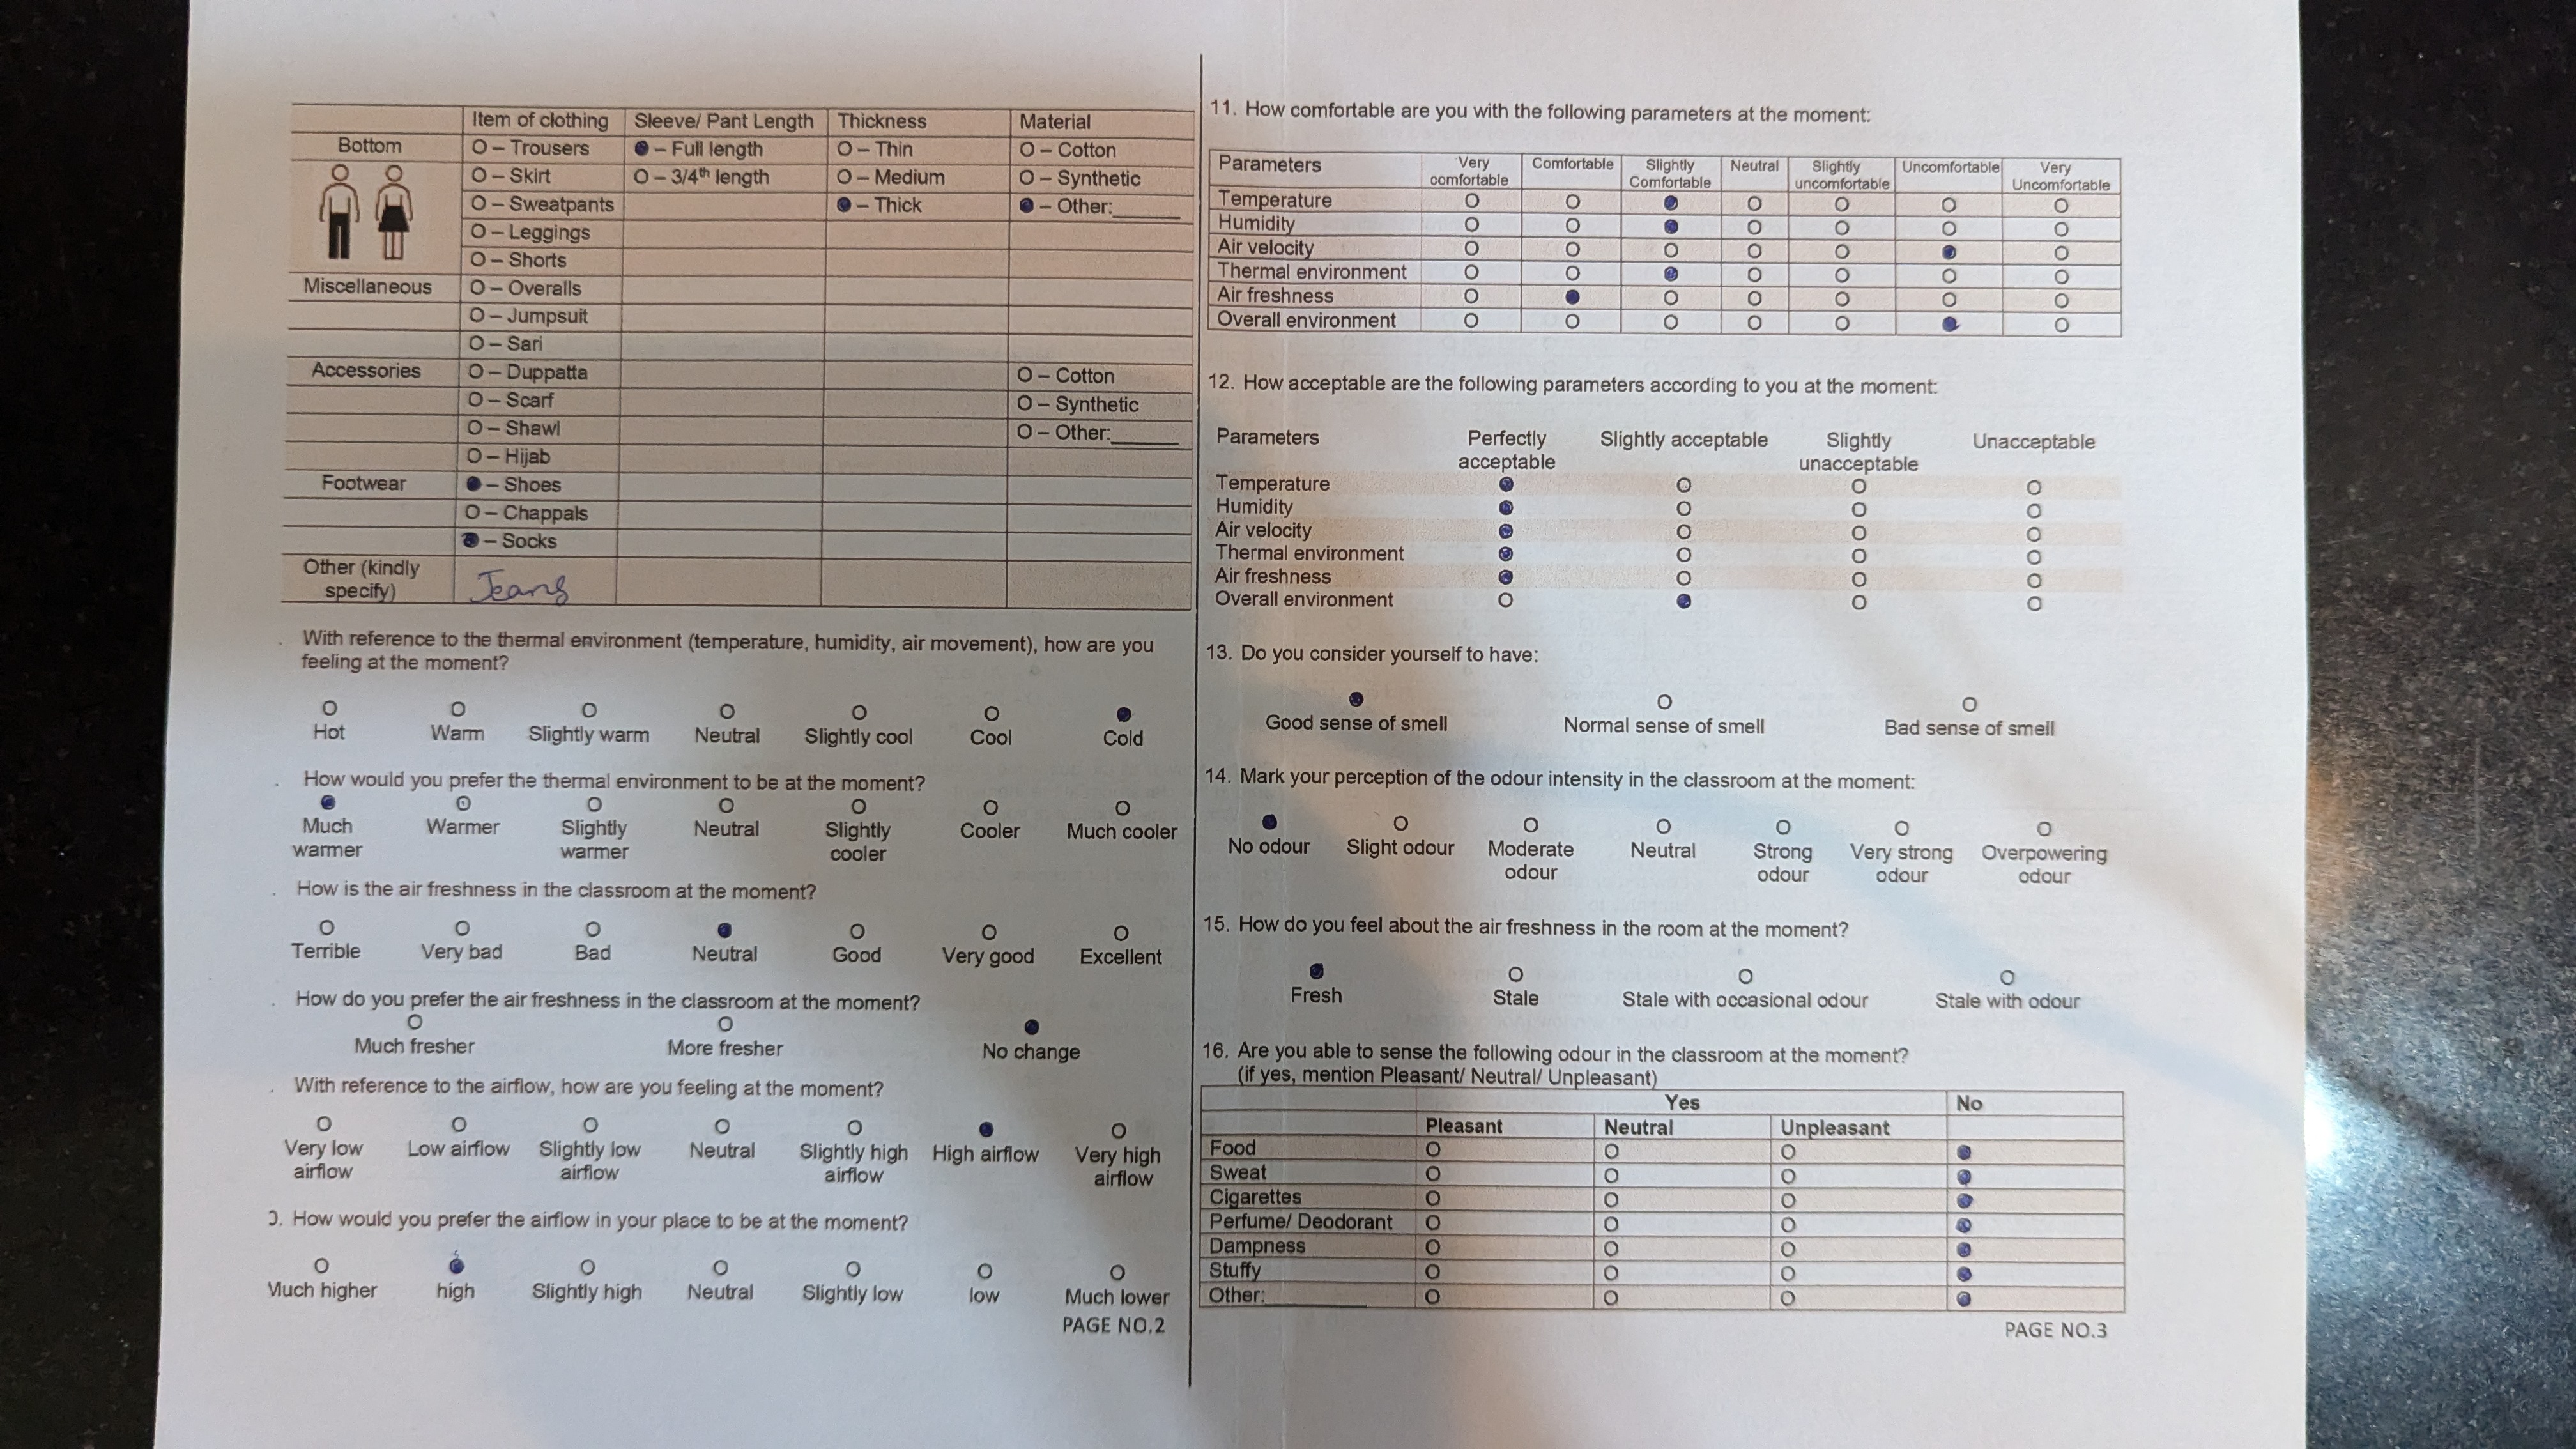 Item of clothing Sleeve/ Pant Length Thickness Material
Bottom O – Trousers ● – Full length O – Thin O – Cotton
O – Skirt O – 3/4th length O – Medium O – Synthetic
O – Sweatpants ● – Thick ● – Other:______
O – Leggings
O – Shorts
Miscellaneous O – Overalls
O – Jumpsuit
O – Sari
Accessories O – Duppatta O – Cotton
O – Scarf O – Synthetic
O – Shawl O – Other:______
O – Hijab
Footwear ● – Shoes
O – Chappals
● – Socks
Other (kindly
specify) Jeans
With reference to the thermal environment (temperature, humidity, air movement), how are you
feeling at the moment?
Hot Warm Slightly warm Neutral Slightly cool Cool Cold
How would you prefer the thermal environment to be at the moment?
Much Warmer Slightly Neutral Slightly Cooler Much cooler
warmer warmer cooler
How is the air freshness in the classroom at the moment?
Terrible Very bad Bad Neutral Good Very good Excellent
How do you prefer the air freshness in the classroom at the moment?
Much fresher More fresher No change
With reference to the airflow, how are you feeling at the moment?
Very low Low airflow Slightly low Neutral Slightly high High airflow Very high
airflow airflow airflow airflow
How would you prefer the airflow in your place to be at the moment?
Much higher high Slightly high Neutral Slightly low low Much lower
PAGE NO.2
11. How comfortable are you with the following parameters at the moment:
Parameters Very Comfortable Slightly Neutral Slightly Uncomfortable Very
comfortable Comfortable uncomfortable Uncomfortable
Temperature
Humidity
Air velocity
Thermal environment
Air freshness
Overall environment
12. How acceptable are the following parameters according to you at the moment:
Parameters Perfectly Slightly acceptable Slightly Unacceptable
acceptable unacceptable
Temperature
Humidity
Air velocity
Thermal environment
Air freshness
Overall environment
13. Do you consider yourself to have:
Good sense of smell Normal sense of smell Bad sense of smell
14. Mark your perception of the odour intensity in the classroom at the moment:
No odour Slight odour Moderate Neutral Strong Very strong Overpowering
odour odour odour odour
15. How do you feel about the air freshness in the room at the moment?
Fresh Stale Stale with occasional odour Stale with odour
16. Are you able to sense the following odour in the classroom at the moment?
(if yes, mention Pleasant/ Neutral/ Unpleasant)
Yes No
Pleasant Neutral Unpleasant
Food
Sweat
Cigarettes
Perfume/ Deodorant
Dampness
Stuffy
Other:__________
PAGE NO.3